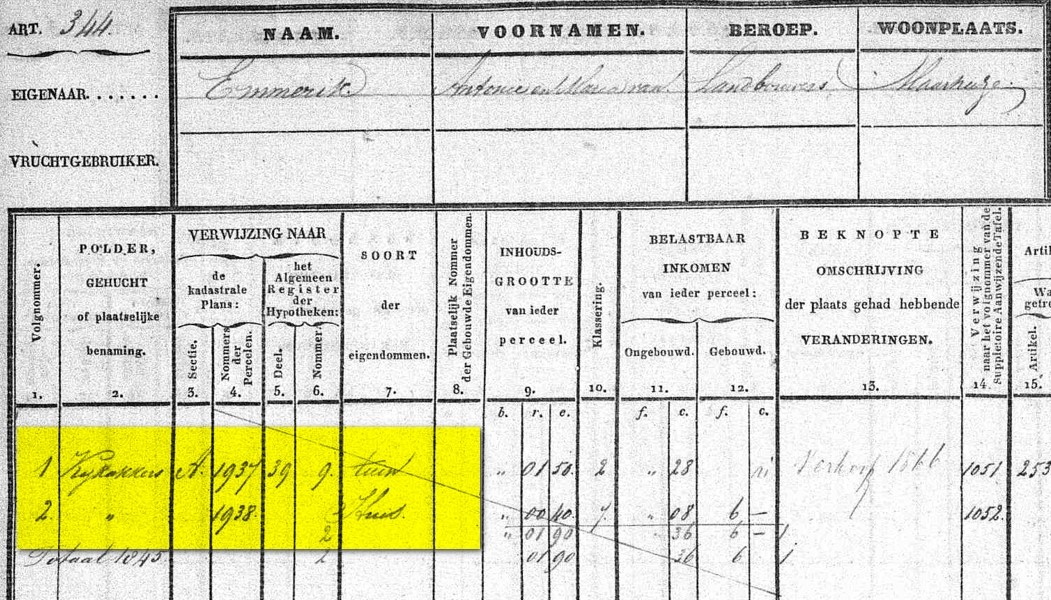 ART. 344.
NAAM. VOORNAMEN. BEROEP. WOONPLAATS.
EIGENAAR....... Emmerik Antonie en Maria van Landbouwers Maarheeze
VRUCHTGEBRUIKER.
Volgnommer.
1.
POLDER,
GEHUCHT
of plaatselijke
benaming.
2.
VERWIJZING NAAR
de
kadastrale
Plans:
Sectie.
3.
Nommers
der
Percelen.
4.
het
Algemeen
Register
der
Hypotheken:
Deel.
5.
Nommer.
6.
SOORT
der
eigendommen.
7.
Plaatselijk Nommer
der Gebouwde Eigendommen.
8.
INHOUDS-
GROOTTE
van ieder
perceel.
9.
Klassering.
10.
BELASTBAAR
INKOMEN
van ieder perceel:
Ongebouwd.
11.
Gebouwd.
12.
BEKNOPTE
OMSCHRIJVING
der plaats gehad hebbende
VERANDERINGEN.
13.
Verwijzing
naar het volgnommer van de
Suppletoire Aanwijzende Tafel.
14.
Arti
Wa
getro
Artikel.
15.
b. r. e. f. c. f. c.
1 Kijkakkers A. 1937 39 9. tuin " 01 50. 2 " 28 Verkoop 1866 1051 253
2. " 1938. Huis. " 00 40. 7 " 08 6 — 1052
2 " 01 90 " 36 6 — 1
Totaal 1845. 2 01 90 36 6 1